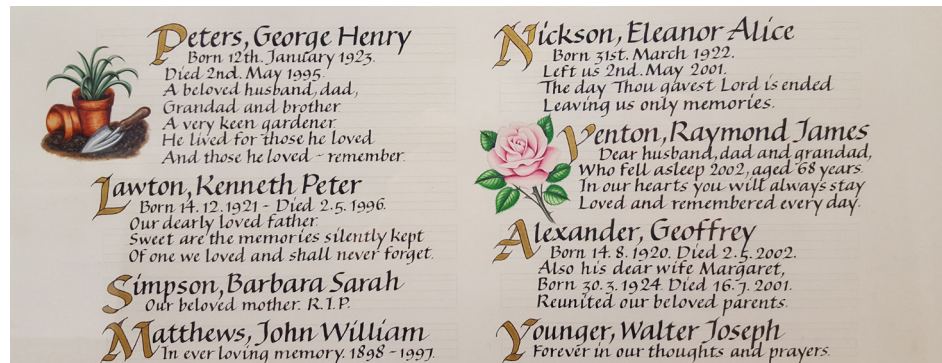 Peters, George Henry
Born 12th. January 1923.
Died 2nd. May 1995.
A beloved husband, dad,
Grandad and brother.
A very keen gardener.
He lived for those he loved
And those he loved - remember.
Lawton, Kenneth Peter
Born 14.12.1921 - Died 2.5.1996.
Our dearly loved father.
Sweet are the memories silently kept
Of one we loved and shall never forget.
Simpson, Barbara Sarah
Our beloved mother. R.I.P.
Matthews, John William
In ever loving memory. 1898 - 1997.
Nickson, Eleanor Alice
Born 31st. March 1922.
Left us 2nd. May 2001.
The day Thou gavest Lord is ended
Leaving us only memories.
Venton, Raymond James
Dear husband, dad and grandad,
Who fell asleep 2002, aged 68 years.
In our hearts you will always stay
Loved and remembered every day.
Alexander, Geoffrey
Born 14.8.1920. Died 2.5.2002.
Also his dear wife Margaret,
Born 30.3.1924. Died 16.7.2001.
Reunited our beloved parents.
Younger, Walter Joseph
Forever in our thoughts and prayers.